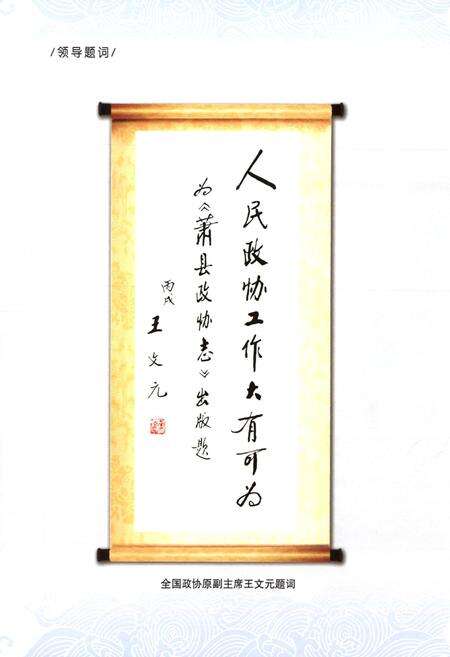 /领导题词/
人民政协工作大有可为
为《萧县政协志》出版题
丙戌
王文元
全国政协原副主席王文元题词